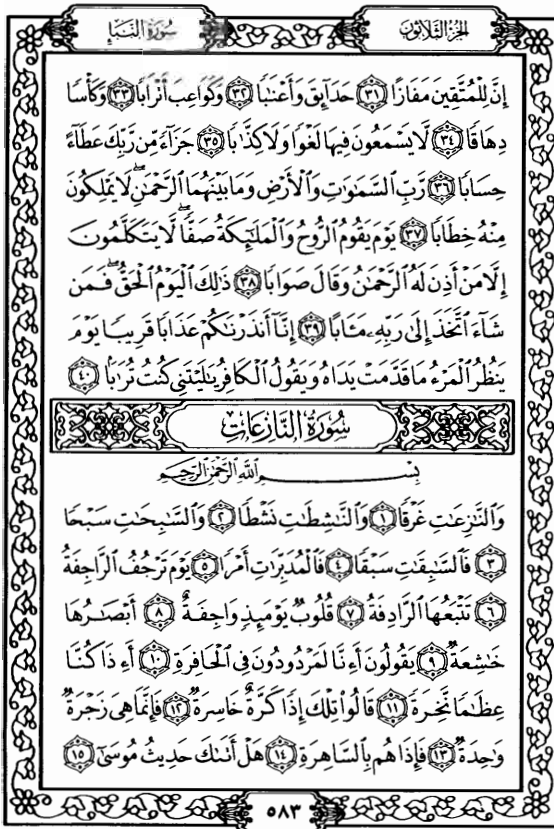 سُورَةُ النَّبَإِ
الجُزْءُ الثَّلَاثُونَ
إِنَّ لِلْمُتَّقِينَ مَفَازًا ٣١ حَدَآئِقَ وَأَعْنَٰبًا ٣٢ وَكَوَاعِبَ أَتْرَابًا ٣٣ وَكَأْسًا
دِهَاقًا ٣٤ لَّا يَسْمَعُونَ فِيهَا لَغْوًا وَلَا كِذَّٰبًا ٣٥ جَزَآءً مِّن رَّبِّكَ عَطَآءً
حِسَابًا ٣٦ رَّبِّ ٱلسَّمَٰوَٰتِ وَٱلْأَرْضِ وَمَا بَيْنَهُمَا ٱلرَّحْمَٰنِۖ لَا يَمْلِكُونَ
مِنْهُ خِطَابًا ٣٧ يَوْمَ يَقُومُ ٱلرُّوحُ وَٱلْمَلَٰٓئِكَةُ صَفًّاۖ لَّا يَتَكَلَّمُونَ
إِلَّا مَنْ أَذِنَ لَهُ ٱلرَّحْمَٰنُ وَقَالَ صَوَابًا ٣٨ ذَٰلِكَ ٱلْيَوْمُ ٱلْحَقُّۖ فَمَن
شَآءَ ٱتَّخَذَ إِلَىٰ رَبِّهِۦ مَـَٔابًا ٣٩ إِنَّآ أَنذَرْنَٰكُمْ عَذَابًا قَرِيبًا يَوْمَ
يَنظُرُ ٱلْمَرْءُ مَا قَدَّمَتْ يَدَاهُ وَيَقُولُ ٱلْكَافِرُ يَٰلَيْتَنِى كُنتُ تُرَٰبًۢا ٤٠
سُورَةُ النَّازِعَاتِ
بِسْمِ ٱللَّهِ ٱلرَّحْمَٰنِ ٱلرَّحِيمِ
وَٱلنَّٰزِعَٰتِ غَرْقًا ١ وَٱلنَّٰشِطَٰتِ نَشْطًا ٢ وَٱلسَّٰبِحَٰتِ سَبْحًا
٣ فَٱلسَّٰبِقَٰتِ سَبْقًا ٤ فَٱلْمُدَبِّرَٰتِ أَمْرًا ٥ يَوْمَ تَرْجُفُ ٱلرَّاجِفَةُ
٦ تَتْبَعُهَا ٱلرَّادِفَةُ ٧ قُلُوبٌ يَوْمَئِذٍ وَاجِفَةٌ ٨ أَبْصَٰرُهَا
خَٰشِعَةٌ ٩ يَقُولُونَ أَءِنَّا لَمَرْدُودُونَ فِى ٱلْحَافِرَةِ ١٠ أَءِذَا كُنَّا
عِظَٰمًا نَّخِرَةً ١١ قَالُوا۟ تِلْكَ إِذًا كَرَّةٌ خَاسِرَةٌ ١٢ فَإِنَّمَا هِىَ زَجْرَةٌ
وَٰحِدَةٌ ١٣ فَإِذَا هُم بِٱلسَّاهِرَةِ ١٤ هَلْ أَتَىٰكَ حَدِيثُ مُوسَىٰٓ ١٥
٥٨٣